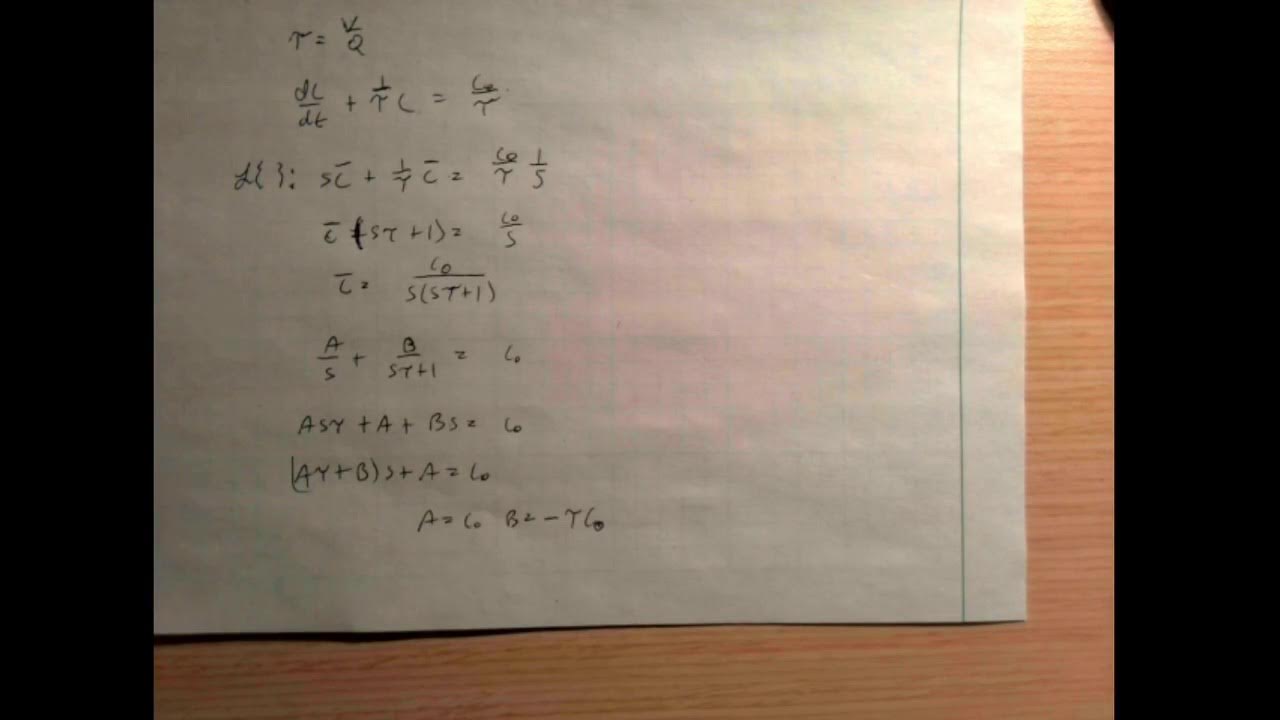 τ = V/Q
dC/dt + 1/τ C = C₀/τ
ℒ{ }: sC̄ + 1/τ C̄ = C₀/τ 1/s
C̄ (sτ + 1) = C₀/s
C̄ = C₀/(s(sτ+1))
A/s + B/(sτ+1) = C₀
Asτ + A + Bs = C₀
(Aτ + B)s + A = C₀
A = C₀ B = -τC₀